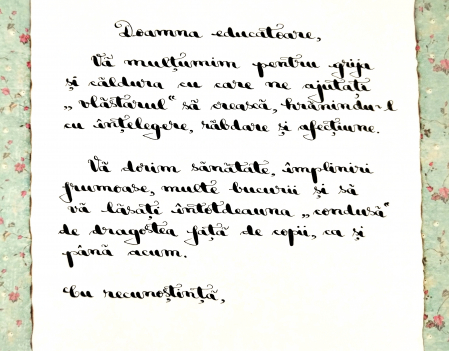 Doamna educatoare,
Vă mulțumim pentru grija
și căldura cu care ne ajutați
„vlăstarul“ să crească, hrănindu-l
cu înțelegere, răbdare și afecțiune.
Vă dorim sănătate, împliniri
frumoase, multe bucurii și să
vă lăsați întotdeauna „condusă“
de dragostea față de copii, ca și
până acum.
Cu recunoștință,